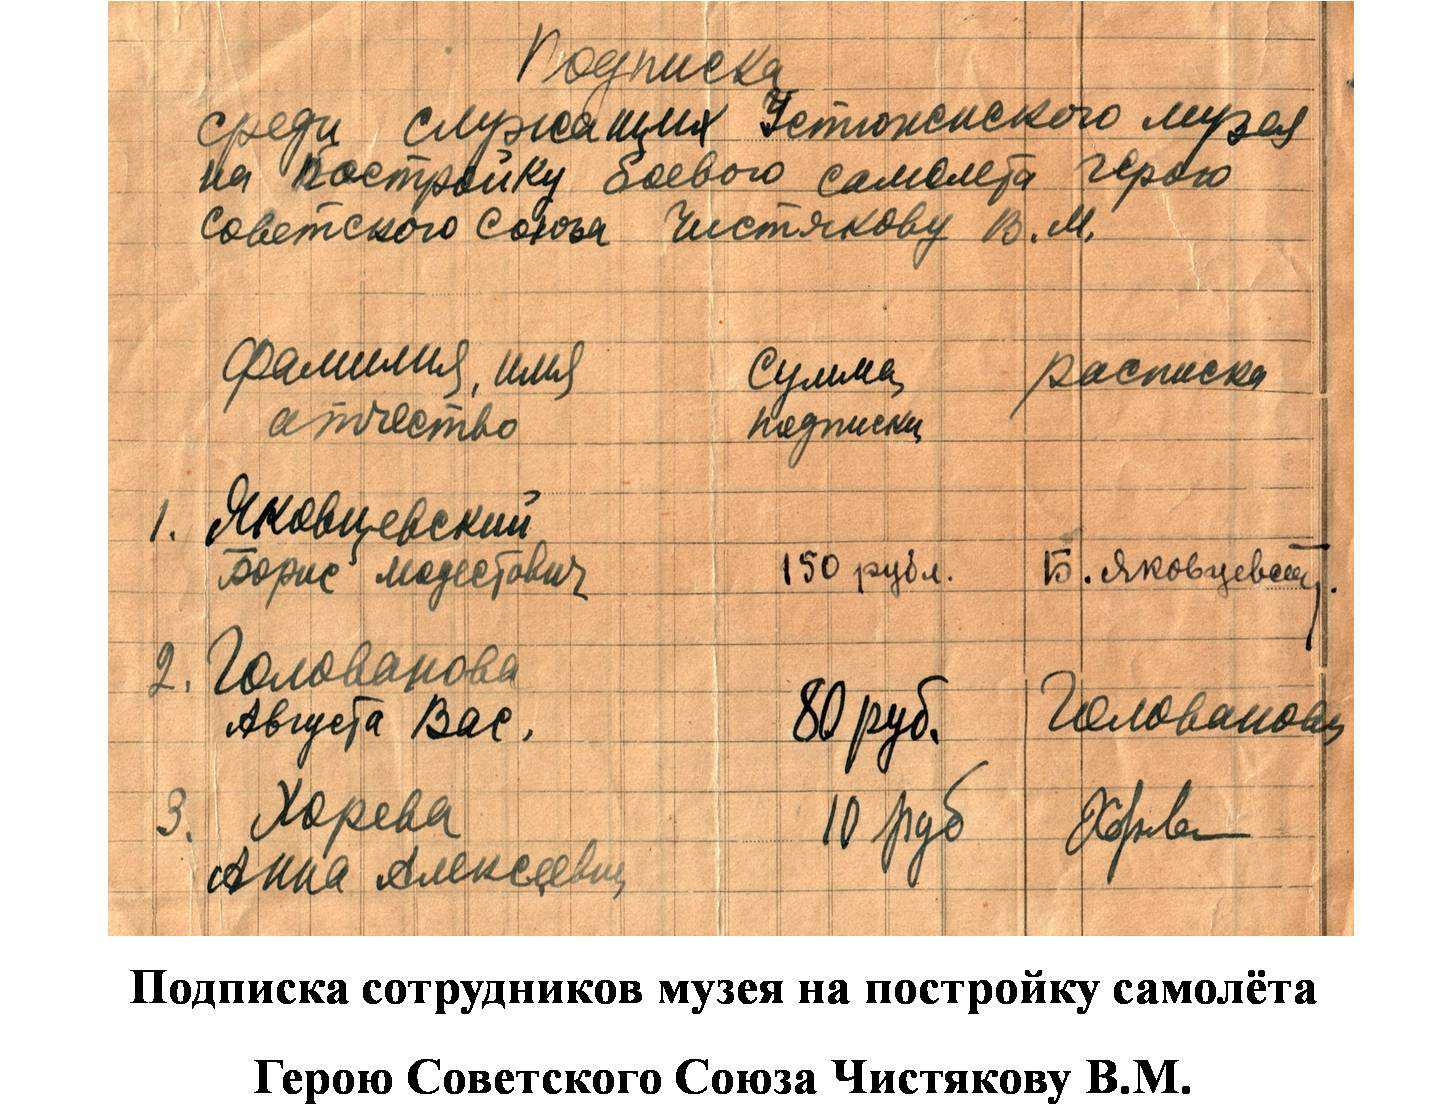 Подписка
среди служащих Устюженского музея
на постройку боевого самолета герою
советского союза Чистякову В.М.
фамилия, имя сумма расписка
отчество подписки
1. Яковцевский
Борис Модестович 150 рубл. Б. Яковцевский.
2. Голованова
Августа Вас. 80 руб. Голованова
3. Хорева 10 руб Хорева
Анна Алексеевн
Подписка сотрудников музея на постройку самолёта
Герою Советского Союза Чистякову В.М.